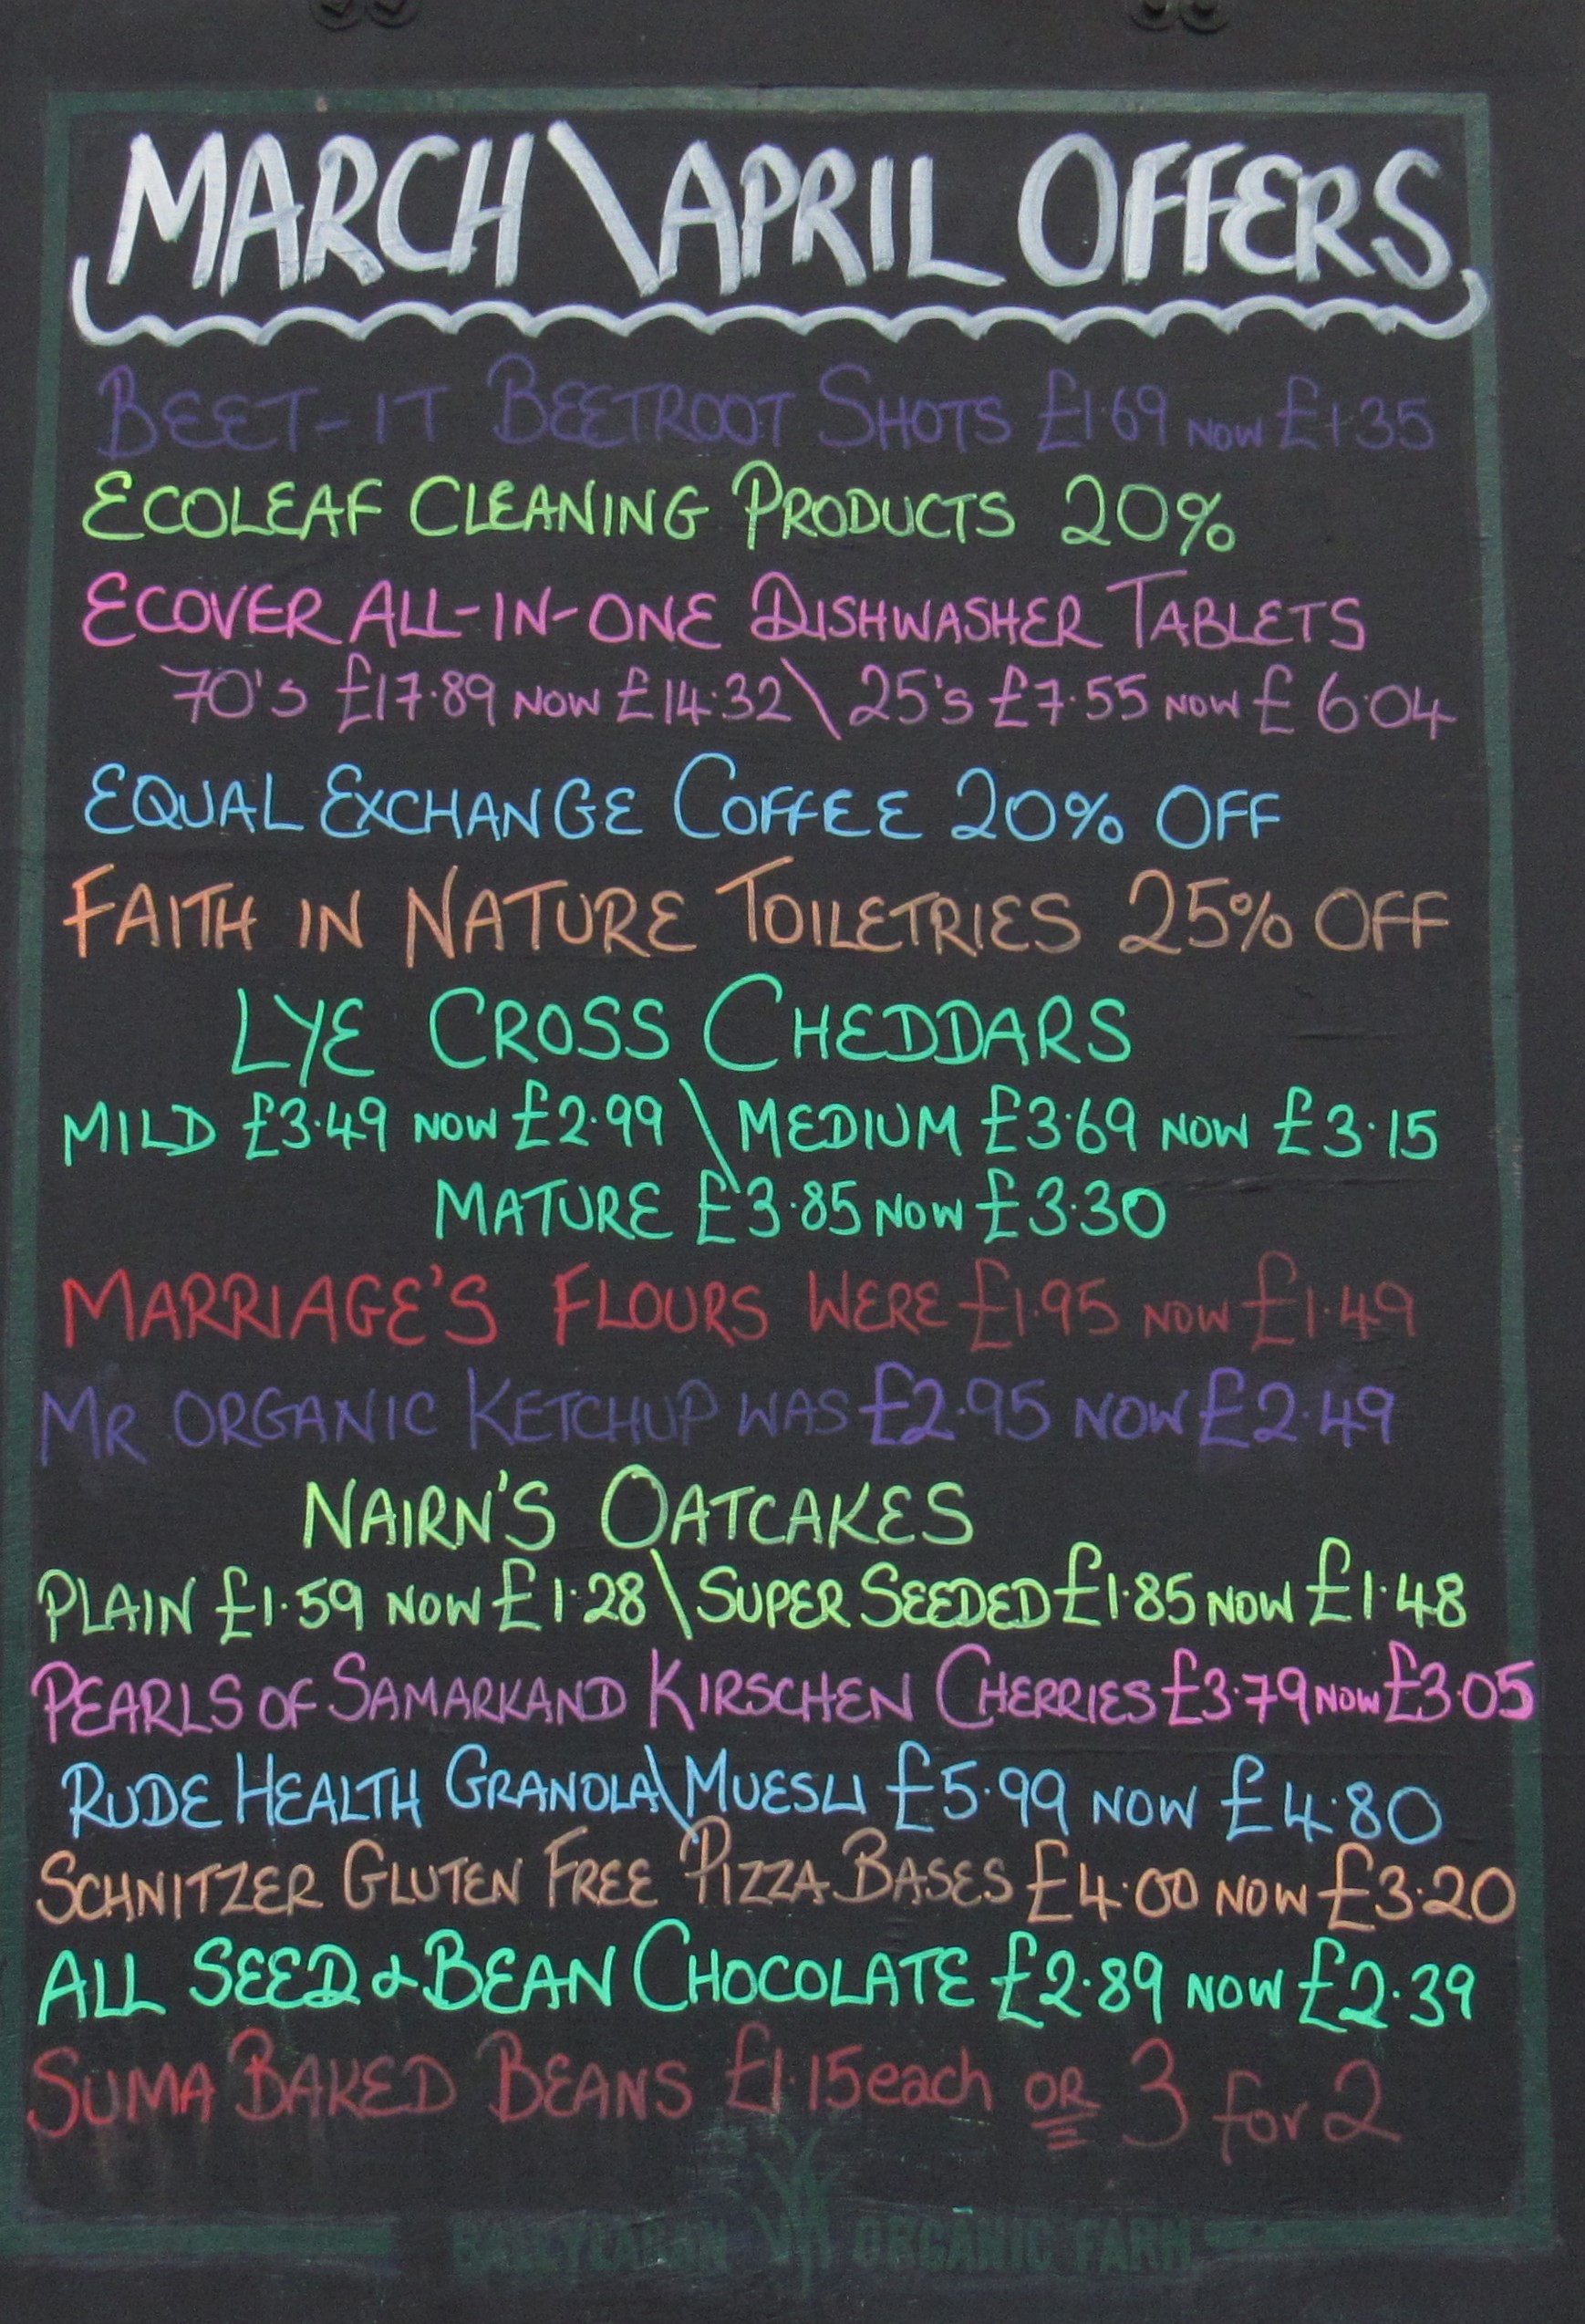 MARCH\APRIL OFFERS
BEET-IT BEETROOT SHOTS £1.69 NOW £1.35
ECOLEAF CLEANING PRODUCTS 20%
ECOVER ALL-IN-ONE DISHWASHER TABLETS
70'S £17.89 NOW £14.32\25's £7.55 NOW £6.04
EQUAL EXCHANGE COFFEE 20% OFF
FAITH IN NATURE TOILETRIES 25% OFF
LYE CROSS CHEDDARS
MILD £3.49 NOW £2.99\MEDIUM £3.69 NOW £3.15
MATURE £3.85 NOW £3.30
MARRIAGE'S FLOURS WERE £1.95 NOW £1.49
MR ORGANIC KETCHUP WAS £2.95 NOW £2.49
NAIRN'S OATCAKES
PLAIN £1.59 NOW £1.28\SUPER SEEDED £1.85 NOW £1.48
PEARLS OF SAMARKAND KIRSCHEN CHERRIES £3.79 NOW £3.05
RUDE HEALTH GRANOLA\MUESLI £5.99 NOW £4.80
SCHNITZER GLUTEN FREE PIZZA BASES £4.00 NOW £3.20
ALL SEED & BEAN CHOCOLATE £2.89 NOW £2.39
SUMA BAKED BEANS £1.15 each OR 3 for 2
ORGANIC FARM